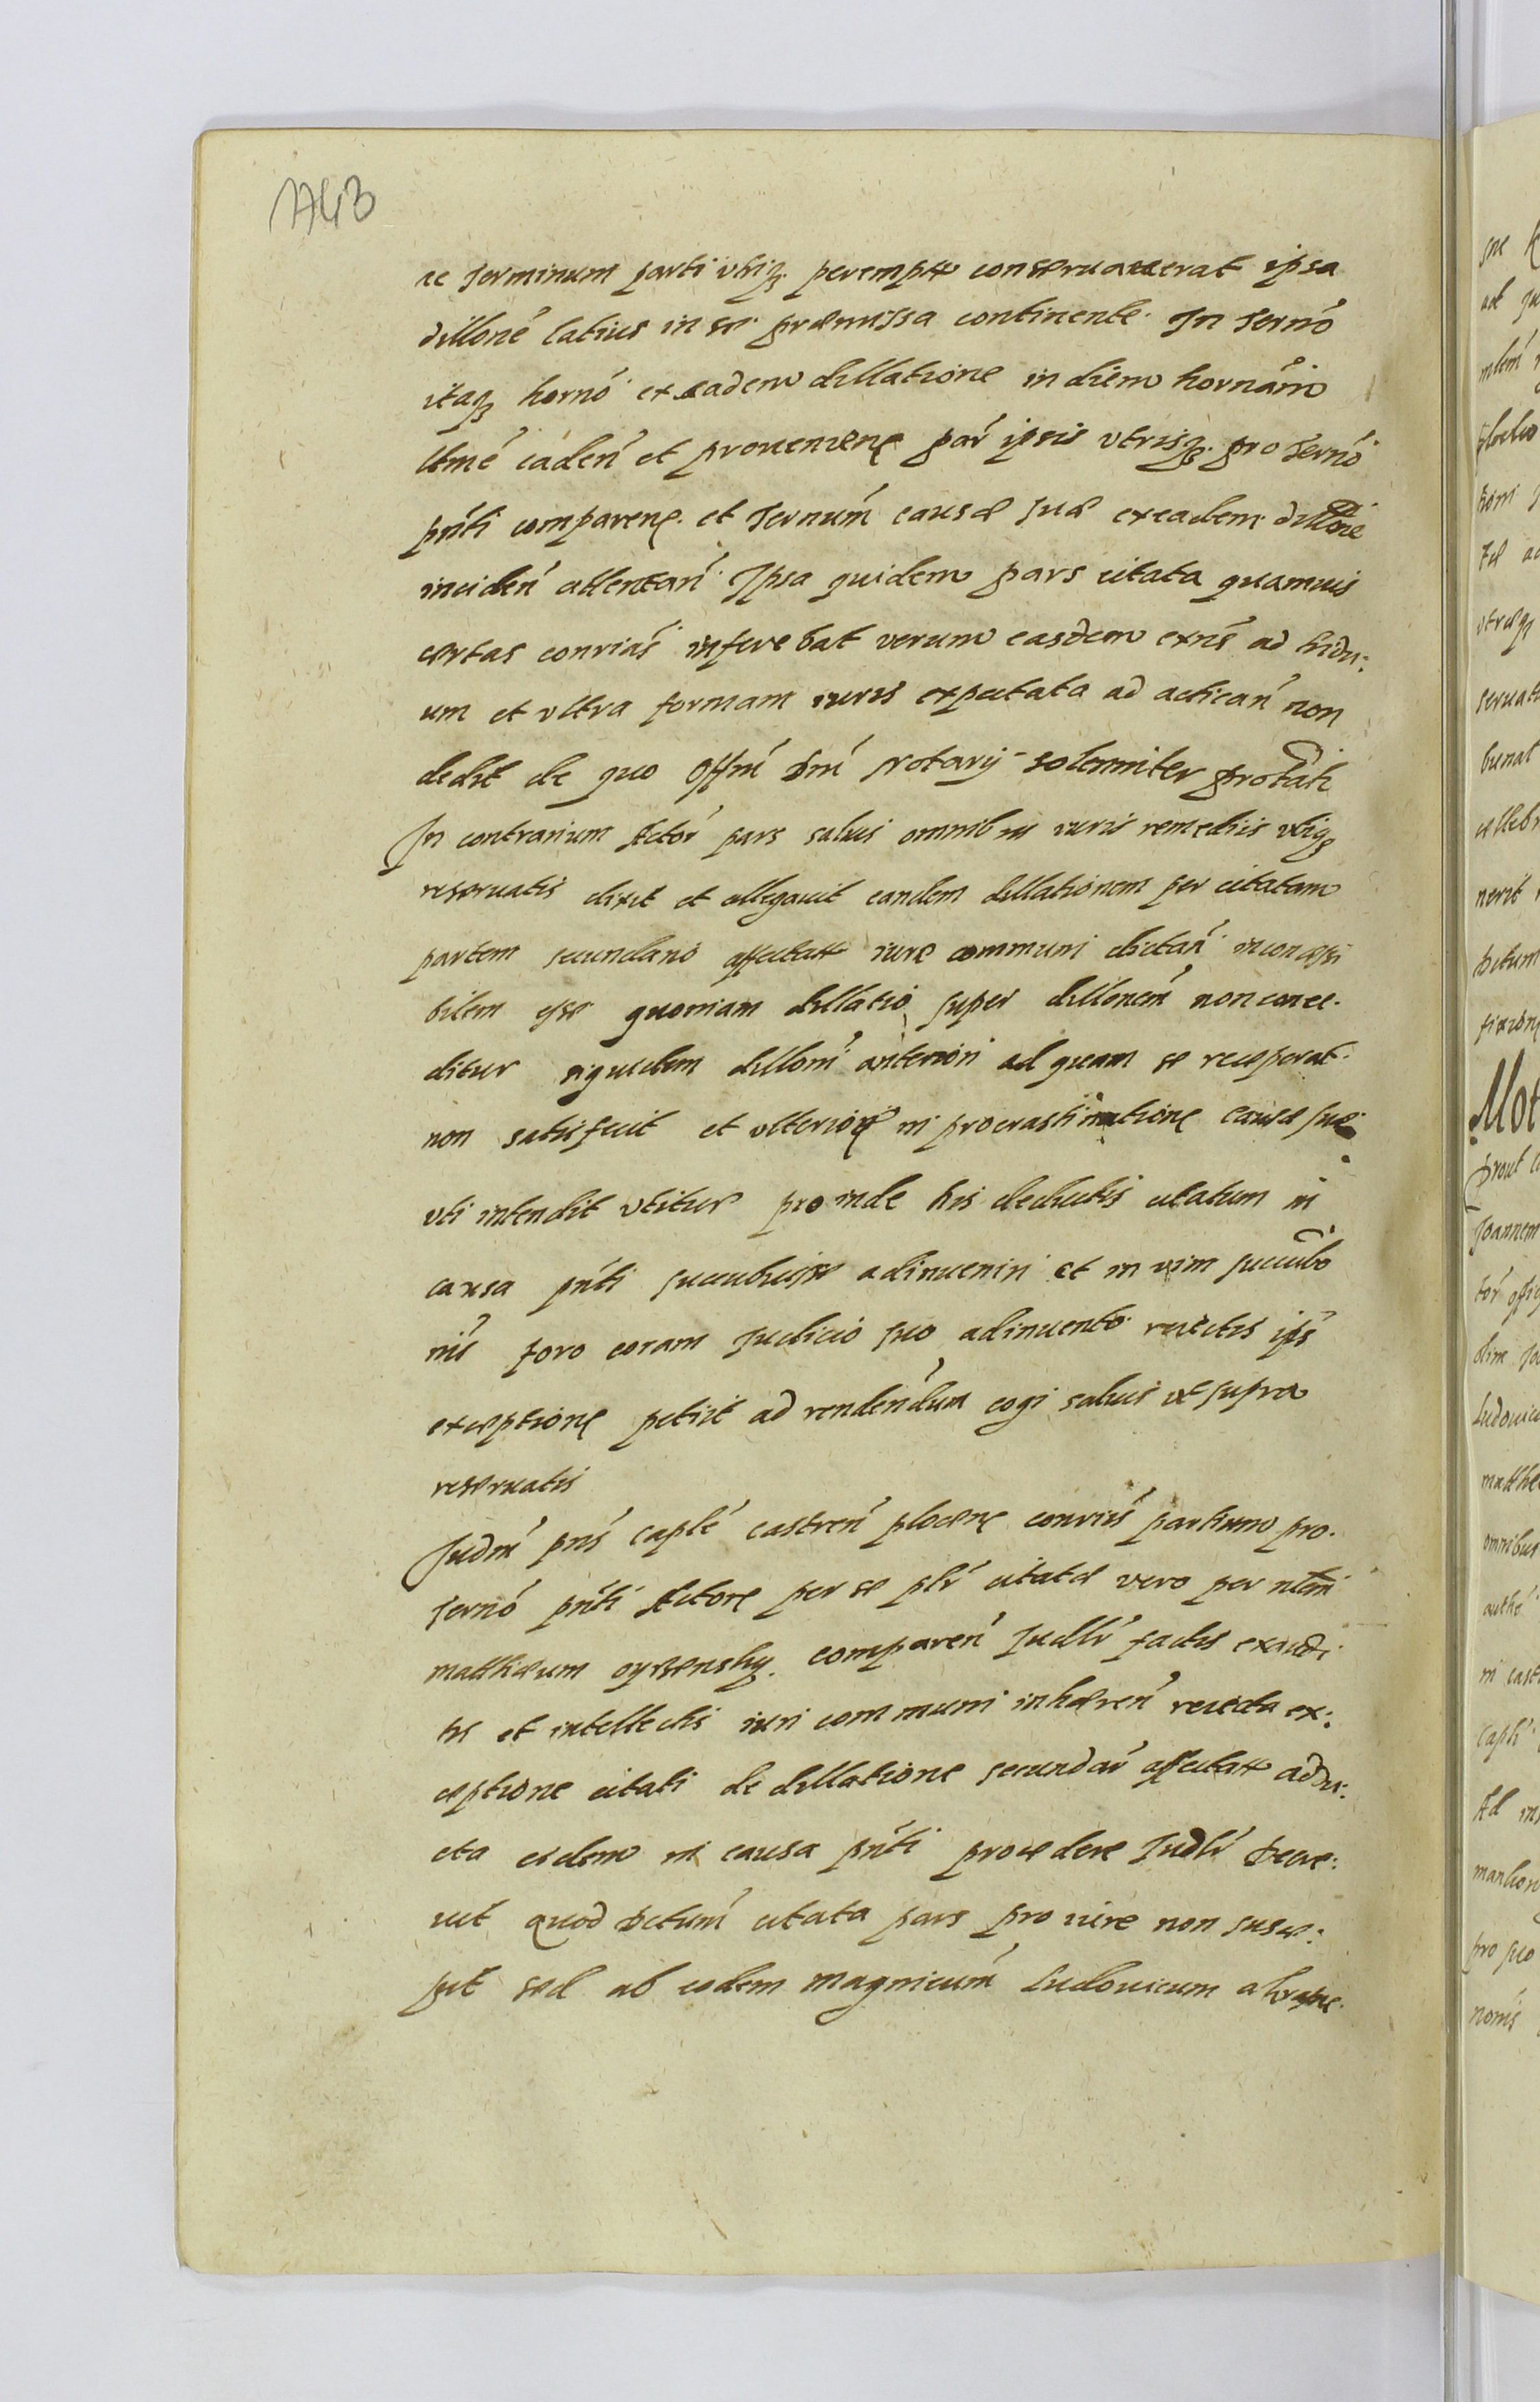 1743
ac Terminum parti vtriq3 perempt conseruauerat ipsa
dillone latius in se præmissa continente. In Termo
itaq3 horno ex eadem dillatione in diem hornam
ltme caden et prouenien par ipsis vtrisq3 pro Termo
pnti comparen. et Termum causæ suæ ex eadem dillone
inciden attentan. Ipsa quidem pars citata quamuis
certas conrias inferebat verum easdem exns ad tridu:
um et vltra formam iuris expectata ad actican non
dedit de quo Offm dni Notarij solenniter protati
In contrarium Actor pars saluis omnibus iuris remediis vbiq3
reseruatis dixit et allegauit eandem dillationem per citatam
partem secundario affectat iure communi dictan inconcessi
bilem esse quoniam dillatio super dillonem non conce.
ditur siquidem dilloni anteriori ad quam se receperat.
non satisfecit et vlterior in procrastinatione causæ suæ
vti intendit vtitur proinde his deductis citatum in
causa pnti succubuisse adinueniri et in vim succubo
nis foro coram Judicio suo adinuento reiectis ips
exceptione petiit ad rendendum cogi saluis vt supra
reseruatis
Judm pns caple castren plocen conrius partium pro.
Termo pnti Actore per se plr citatæ vero per nlem
matthæum comparen Judlr factis exaudi
tis et intellectis iuri communi inhæren reiecta ex:
ceptione citati de dillatione secundar affectat addu:
cta eidem in causa pnti procedere Judlr decre:
uit quod dctum citata pars pro iure non susce:
pit sed ab eodem magnicum Ludouicum